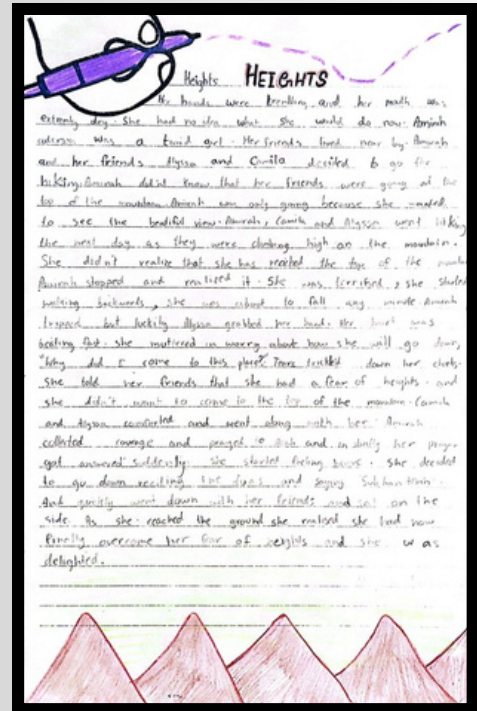 Heights HEIGHTS
hands were trembling and her mouth was
extremly dry. She had no idea what she would do now. Amirah
was a timid girl. Her friends lived near by. Amirah
and her friends Alyssa and Camila decided to go for
hiking. Amirah didn't know that her friends were going at the
top of the mountain. Amirah was only going because she wanted
to see the beatiful view. Amirah, Camila and Alyssa went hiking
the next day as they were climbing high on the mountain.
She didn't realize that she has reached the top of the
Amirah stopped and realized it. She was terrified, she started
walking backwards, she was about to fall any minute. Amirah
tripped but luckily Alyssa grabbed her hand. Her heart was
beating fast. she muttered in worry about how she will go down,
"Why did I come to this place?" Tears trickled down her
She told her friends that she had a fear of heights. and
she didn't want to come to the top of the mountain. Camila
and Alyssa comforted and went along with her. Amirah
collected courage and prayed to and her prayer
got answered suddenly she started feeling She decided
to go down reciting the duas and saying
And quickly went down with her friends and sat on the
side. As she reached the ground she realised she had now
finally overcome her fear of heights and she was
delighted.